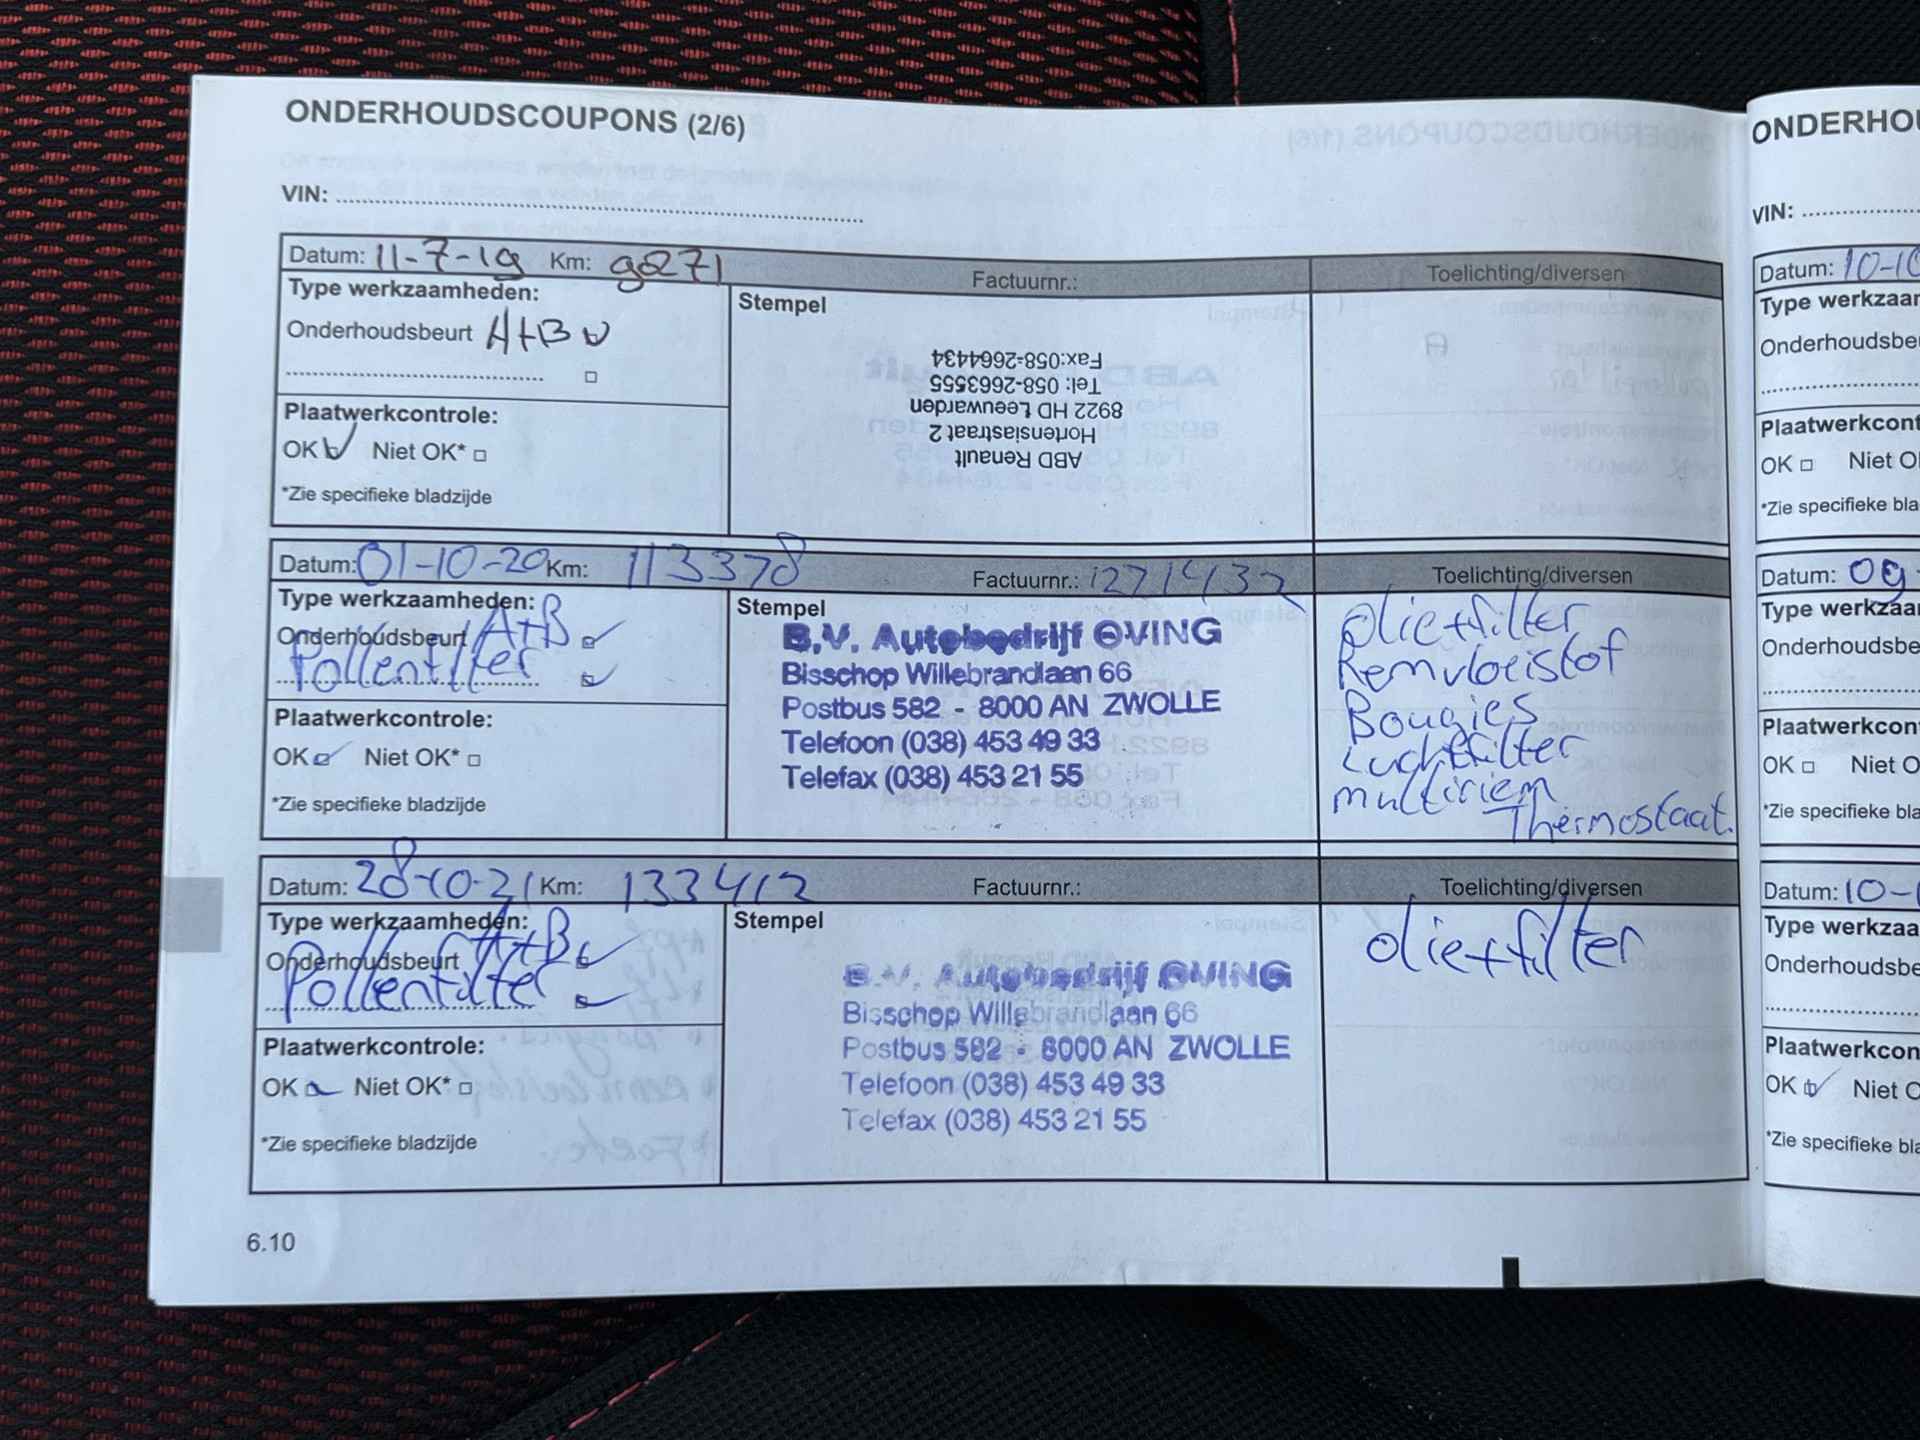 ONDERHOUDSCOUPONS (2/6)
VIN:
Datum: 11-7-19 Km: 90271 Factuurnr.: Toelichting/diversen
Type werkzaamheden:
Onderhoudsbeurt A+B
Stempel
ABD Renault
Hortensiastraat 2
8922 HD Leeuwarden
Tel: 058-2663555
Fax:058-2664434
Plaatwerkcontrole:
OK Niet OK*
*Zie specifieke bladzijde
Datum: 01-10-20 Km: 113378 Factuurnr.: 1221432 Toelichting/diversen
Type werkzaamheden:
Onderhoudsbeurt A+B
Pollenfilter
Plaatwerkcontrole:
OK Niet OK*
*Zie specifieke bladzijde
Stempel
B.V. Autobedrijf OVING
Bisschop Willebrandlaan 66
Postbus 582 - 8000 AN ZWOLLE
Telefoon (038) 453 49 33
Telefax (038) 453 21 55
olie+filter
Remvloeistof
Bougies
Luchtfilter
multiriem
Thermostaat.
Datum: 28-10-21 Km: 133412 Factuurnr.: Toelichting/diversen
Type werkzaamheden:
Onderhoudsbeurt A+B
Pollenfilter
Plaatwerkcontrole:
OK Niet OK*
*Zie specifieke bladzijde
Stempel
B.V. Autobedrijf OVING
Bisschop Willebrandlaan 66
Postbus 582 - 8000 AN ZWOLLE
Telefoon (038) 453 49 33
Telefax (038) 453 21 55
olie+filter
6.10
ONDERHOU
VIN:
Datum: 10-10
Type werkzaam
Onderhoudsbe
Plaatwerkcont
OK Niet O
*Zie specifieke bla
Datum: 09-
Type werkzaa
Onderhoudsbe
Plaatwerkcon
OK Niet O
*Zie specifieke bla
Datum: 10-1
Type werkzaa
Onderhoudsbe
Plaatwerkcon
OK Niet O
*Zie specifieke bla